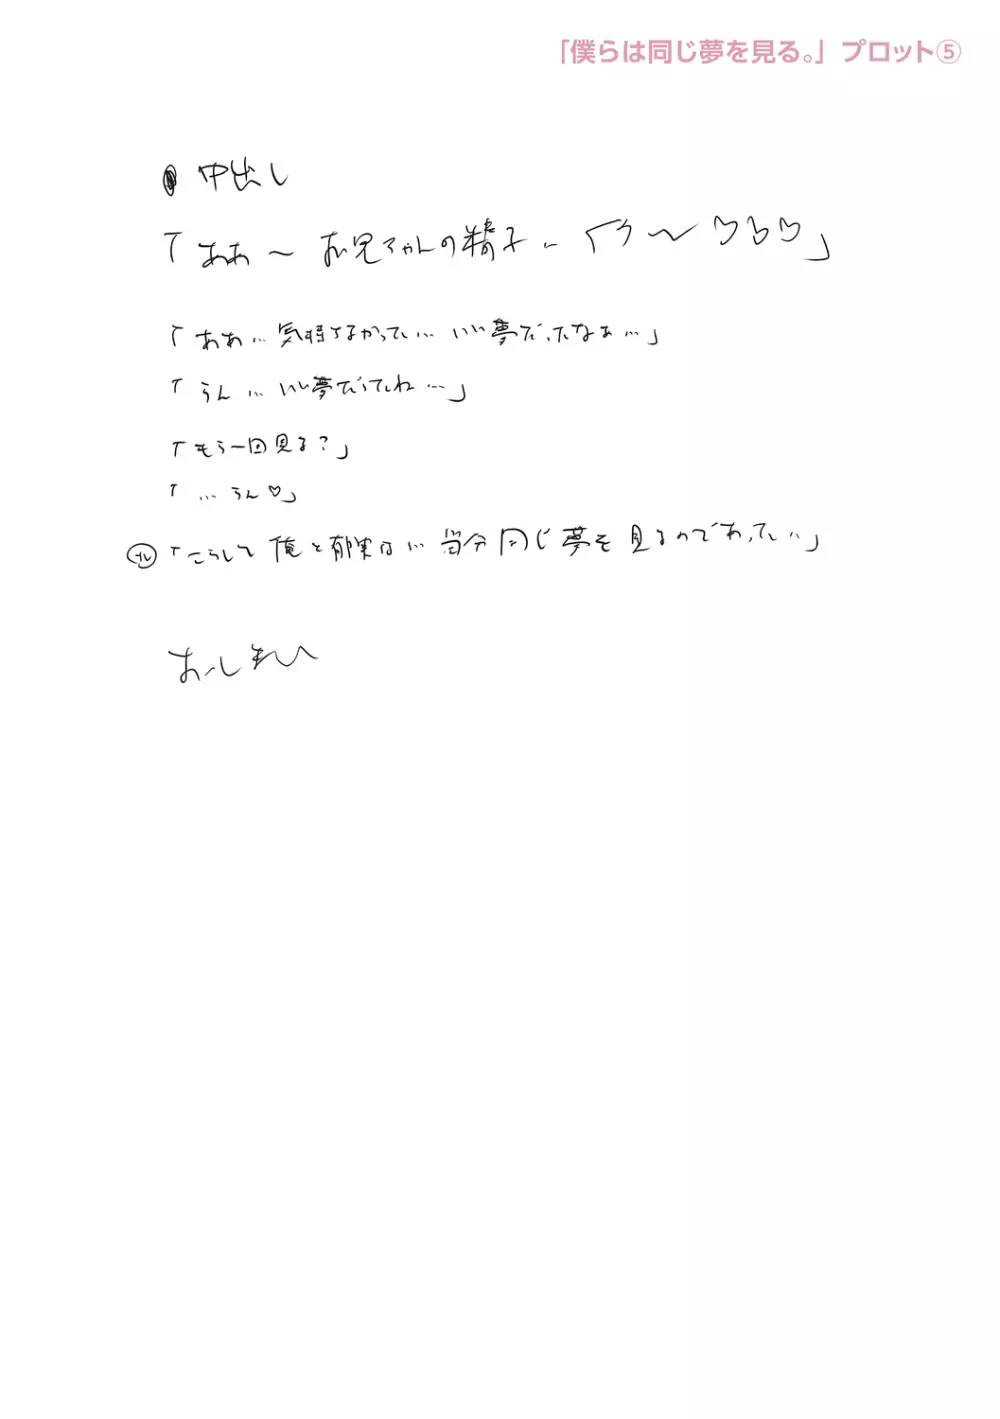 「僕らは同じ夢を見る。」 プロット⑤
中出し
「ああ～お兄ちゃんの精子… くう～♡♡♡」
「ああ…気持ちよかった…いい夢だったなぁ…」
「うん…いい夢だったね…」
「もう一回見る？」
「…うん♡」
「こうして俺と郁実は…当分同じ夢を見るのであった…」
おしまい